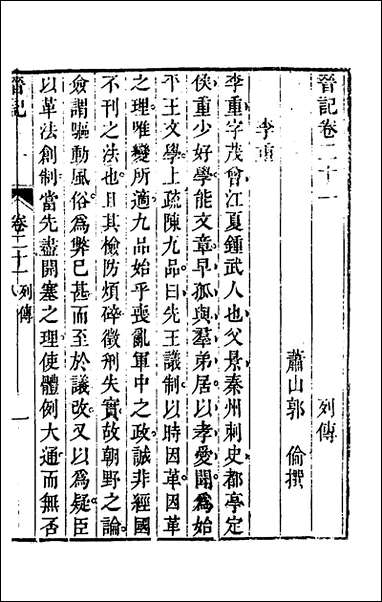 晉記卷二十一
列傳
蕭山郭 倫撰
李重
李重字茂曾江夏鍾武人也父景秦州刺史都亭定
侯重少好學能文章早孤與羣弟居以孝愛聞爲始
平王文學上疏陳九品曰先王議制以時因革因革
之理唯變所適九品始乎喪亂軍中之政誠非經國
不刊之法也且其檢防煩碎徵刑失實故朝野之論
僉謂驅動風俗爲弊已甚而至於議改又以爲疑臣
以革法創制當先盡開塞之理使體例大通而無否
晉記
卷二十一 列傳
一